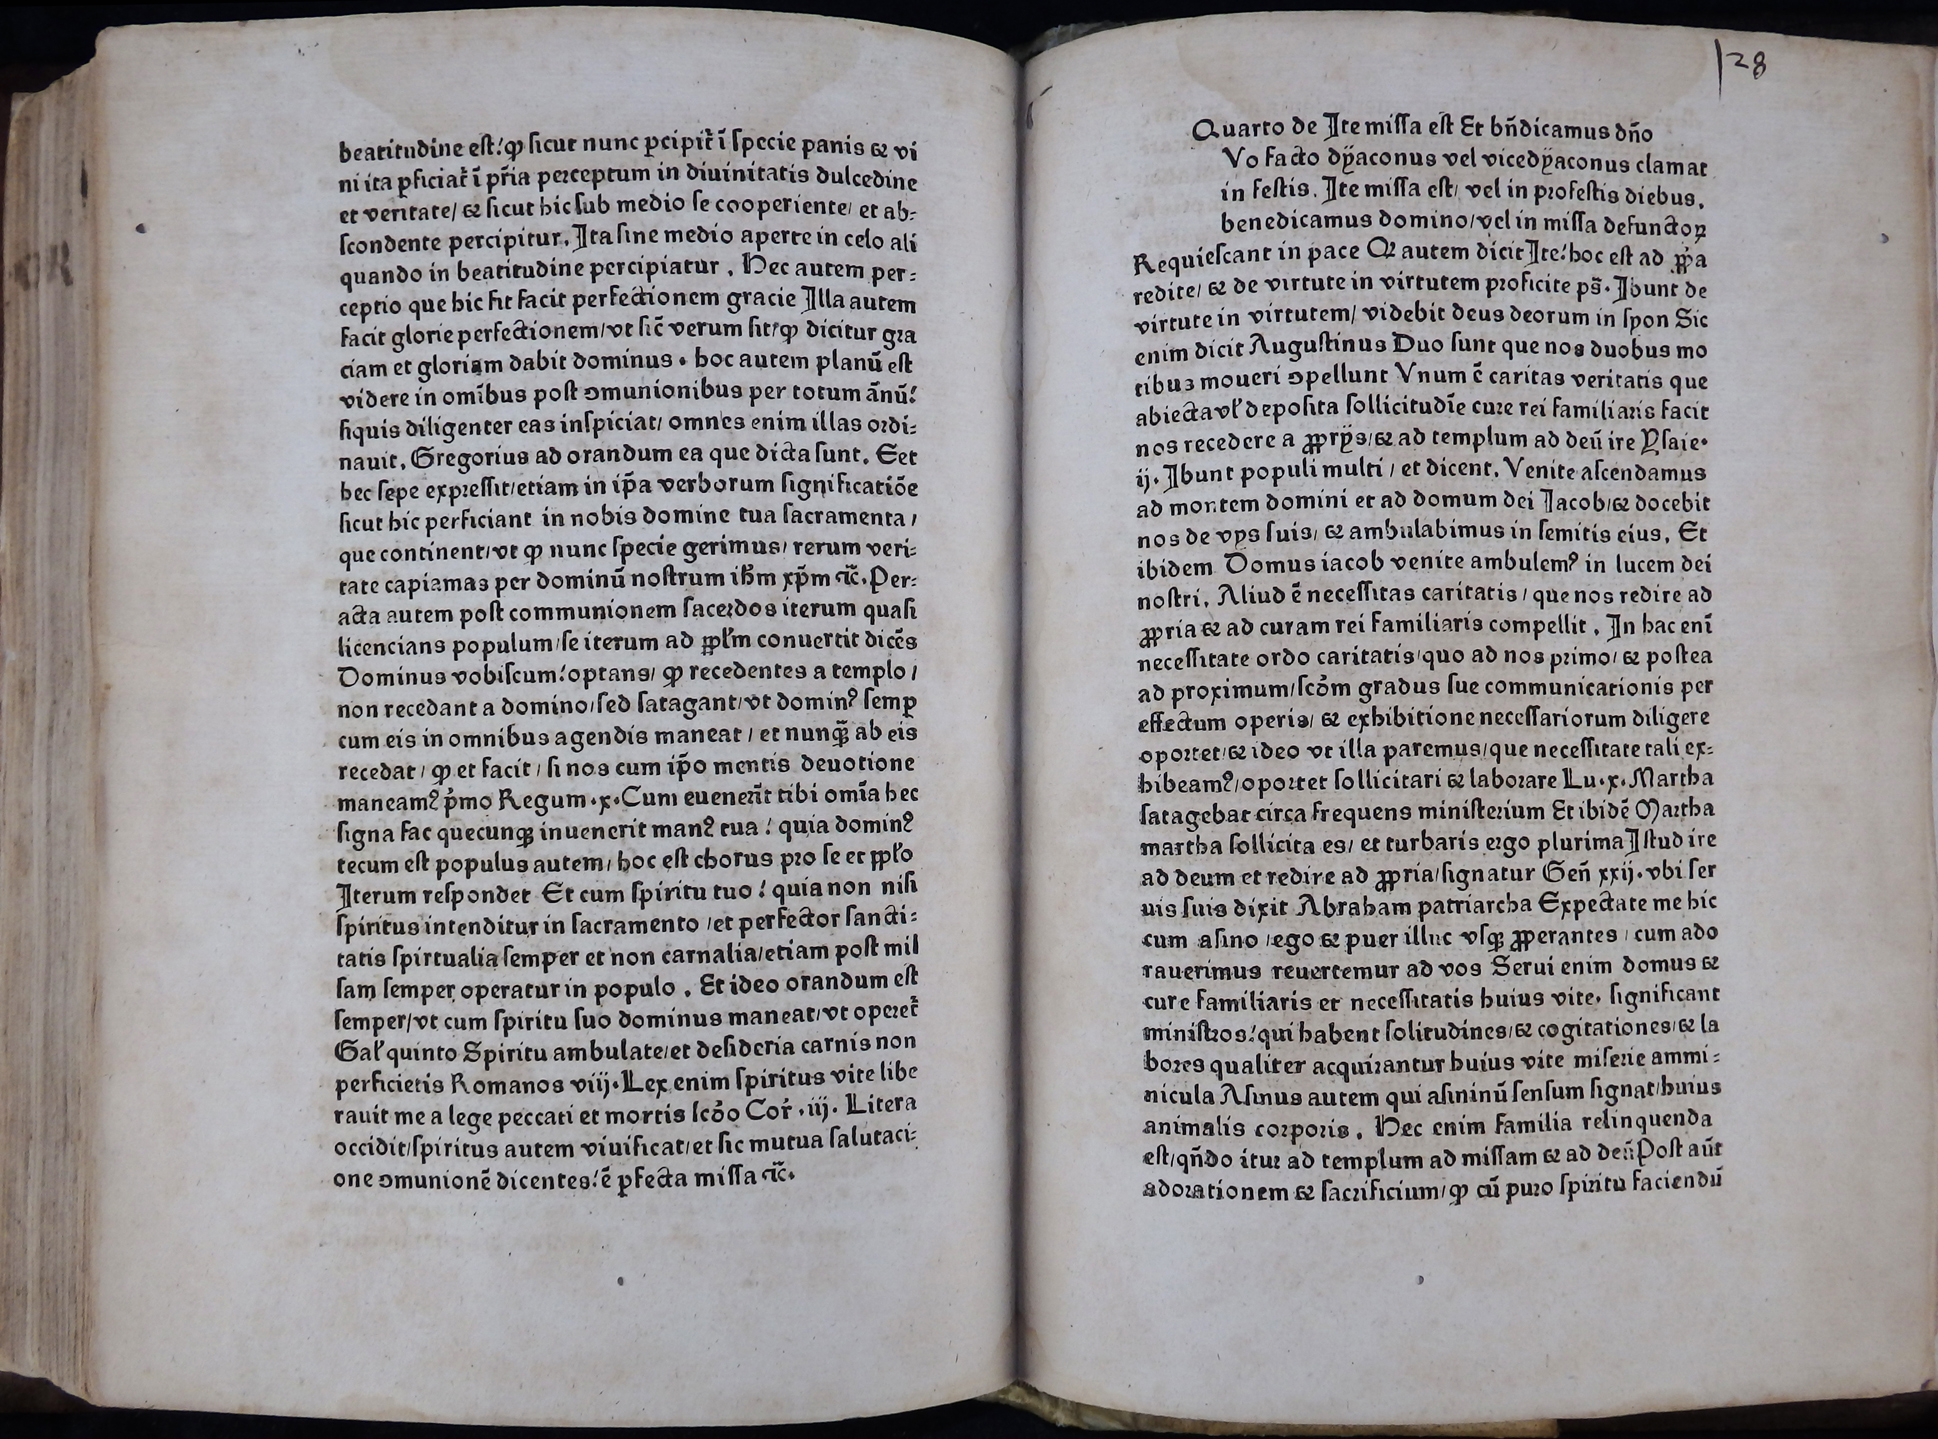 beatitudine est:ꝙ sicut nunc ꝑcipit̃ ĩ specie panis ⁊ vi
ni ita ꝑficiat̃ ĩ pr̃ia perceptum in diuinitatis dulcedine
et veritate/ ⁊ sicut hic sub medio se cooperiente/ et ab⸗
scondente percipitur. Ita sine medio aperte in celo ali
quando in beatitudine percipiatur . Hec autem per⸗
ceptio que hic fit facit perfectionem gracie Illa autem
facit glorie perfectionem/vt sic̃ verum sit/ꝙ dicitur gra
ciam et gloriam dabit dominus . hoc autem planũ est
videre in om̃ibus post ↄmunionibus per totum ãnũ:
siquis diligenter eas inspiciat/ omnes enim illas ordi⸗
nauit. Gregorius ad orandum ea que dicta sunt. Set
hec sepe expressit/etiam in ip̃a verborum significatiõe
sicut hic perficiant in nobis domine tua sacramenta /
que continent/vt ꝙ nunc specie gerimus/ rerum veri⸗
tate capiamas per dominũ nostrum ih̃m xp̃m ⁊c̃. Per⸗
acta autem post communionem sacerdos iterum quasi
licencians populum/se iterum ad ꝓpl̃m conuertit dicẽs
Dominus vobiscum:optans/ ꝙ recedentes a templo /
non recedant a domino/sed satagant/vt dominꝰ semꝑ
cum eis in omnibus agendis maneat / et nunꝗ̃ ab eis
recedat / ꝙ et facit / si nos cum ip̃o mentis deuotione
maneamꝰ p̃mo Regum .x. Cum euener̃it tibi om̃ia hec
signa fac quecunqꝫ inuenerit manꝰ tua : quia dominꝰ
tecum est populus autem/ hoc est chorus pro se et ꝓpl̃o
Iterum respondet Et cum spiritu tuo : quia non nisi
spiritus intenditur in sacramento /et perfector sancti⸗
tatis spirtualia semper et non carnalia/etiam post mis
sam semper operatur in populo . Et ideo orandum est
semper/vt cum spiritu suo dominus maneat/vt operet̃
Gal̃ quinto Spiritu ambulate/et desideria carnis non
perficietis Romanos viij. Lex enim spiritus vite libe
rauit me a lege peccati et mortis scd̃o Cor̃ .iij. Litera
occidit/spiritus autem viuificat/et sic mutua salutaci⸗
one ↄmunionẽ dicentes:ẽ ꝑfecta missa ⁊c̃.
128
Quarto de Ite missa est Et bñdicamus dño
Vo facto dÿaconus vel vicedÿaconus clamat
in festis. Ite missa est/ vel in profestis diebus.
benedicamus domino/vel in missa defunctoꝝ
Requiescant in pace Qꝛ autem dicit Ite:hoc est ad ꝓp̃a
redite/ ⁊ de virtute in virtutem proficite ps̃. Ibunt de
virtute in virtutem/ videbit deus deorum in syon Sic
enim dicit Augustinus Duo sunt que nos duobus mo
tibuꝫ moueri ↄpellunt Vnum ẽ caritas veritatis que
abiecta vl̃ deposita sollicitudĩe cure rei familiaris facit
nos recedere a ꝓprÿs/⁊ ad templum ad deũ ire Ysaie.
ij. Ibunt populi multi / et dicent. Venite ascendamus
ad montem domini et ad domum dei Iacob/⁊ docebit
nos de vys suis/ ⁊ ambulabimus in semitis eius. Et
ibidem Domus iacob venite ambulemꝰ in lucem dei
nostri. Aliud ẽ necessitas caritatis / que nos redire ad
ꝓpria ⁊ ad curam rei familiaris compellit . In hac enĩ
necessitate ordo caritatis/quo ad nos primo/ ⁊ postea
ad proximum/scd̃m gradus sue communicationis per
effectum operis/ ⁊ exhibitione necessariorum diligere
oportet/⁊ ideo vt illa paremus/que necessitate tali ex⸗
hibeamꝰ/oportet sollicitari ⁊ laborare Lu.x. Martha
satagebat circa frequens ministerium Et ibidẽ Martha
martha sollicita es/ et turbaris ergo plurima Istud ire
ad deum et redire ad ꝓpria/signatur Geñ xxij. vbi ser
uis suis dixit Abraham patriarcha Expectate me hic
cum asino /ego ⁊ puer illuc vsqꝫ ꝓperantes / cum ado
rauerimus reuertemur ad vos Serui enim domus ⁊
cure familiaris et necessitatis huius vite. significant
ministros:qui habent solitudines/⁊ cogitationes/⁊ la
bores qualiter acquirantur huius vite miserie ammi⸗
nicula Asinus autem qui asininũ sensum signat/huius
animalis corporis . Hec enim familia relinquenda
est/qñdo itur ad templum ad missam ⁊ ad deũ Post aũt
adorationem ⁊ sacrificium/ꝙ cũ puro spiritu faciendũ